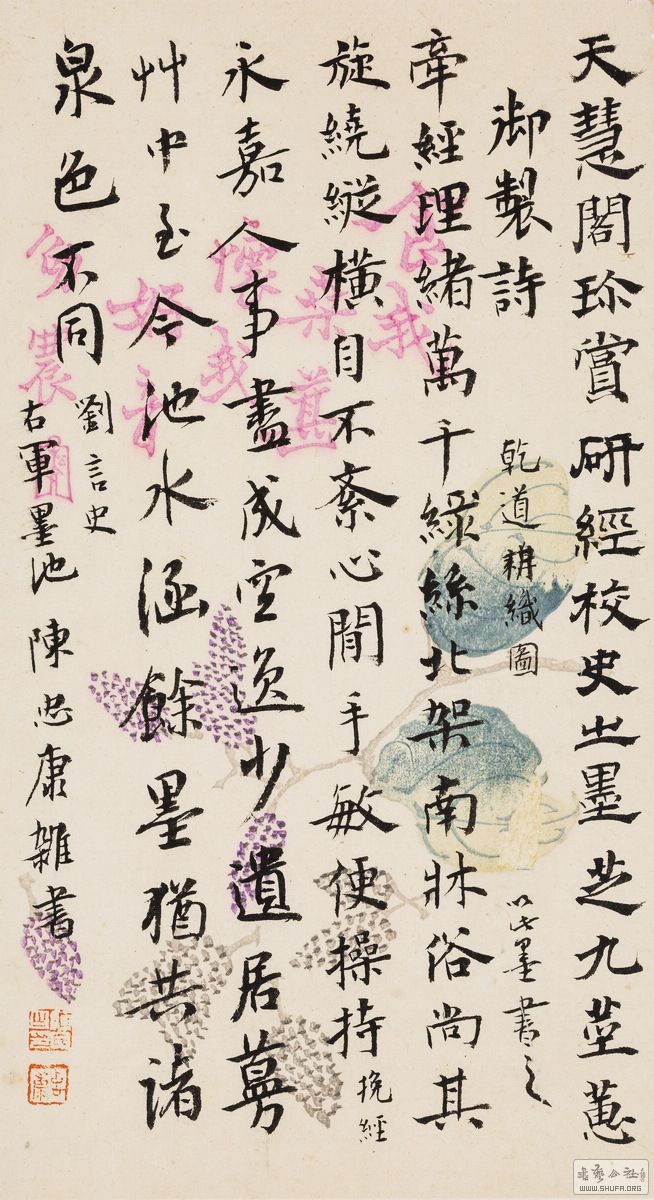 天慧閣珎賞研經校史之墨芝九莖蕙
御製詩 乾道耕織圖 以此墨書之
牽經理緒萬千綠絲北架南牀俗尚其
旋繞縱橫自不紊心閒手敏便操持 挽經
永嘉人事盡成空逸少遺居蔓
艸中至今池水涵餘墨猶共諸
泉色不同 劉言史
右軍墨池 陳忠康雜書
食我
桑葚
懷我
好音
農
書藝公社
WWW.SHUFA.ORG